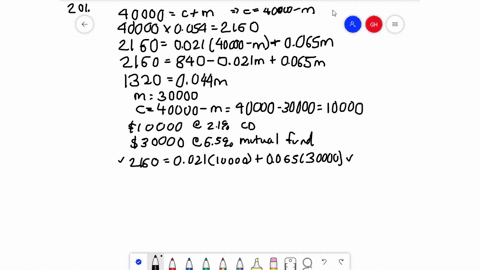 201.
40000 = c + m ⇒ c = 40000 - m
40000 x 0.054 = 2160
2160 = 0.021(40000-m) + 0.065m
2160 = 840 - 0.021m + 0.065m
1320 = 0.044m
m = 30000
c = 40000 - m = 40000 - 30000 = 10000
$10000 @ 2.1% CD
$30000 @ 6.5% mutual fund
✓ 2160 = 0.021(10000) + 0.065(30000) ✓
GH